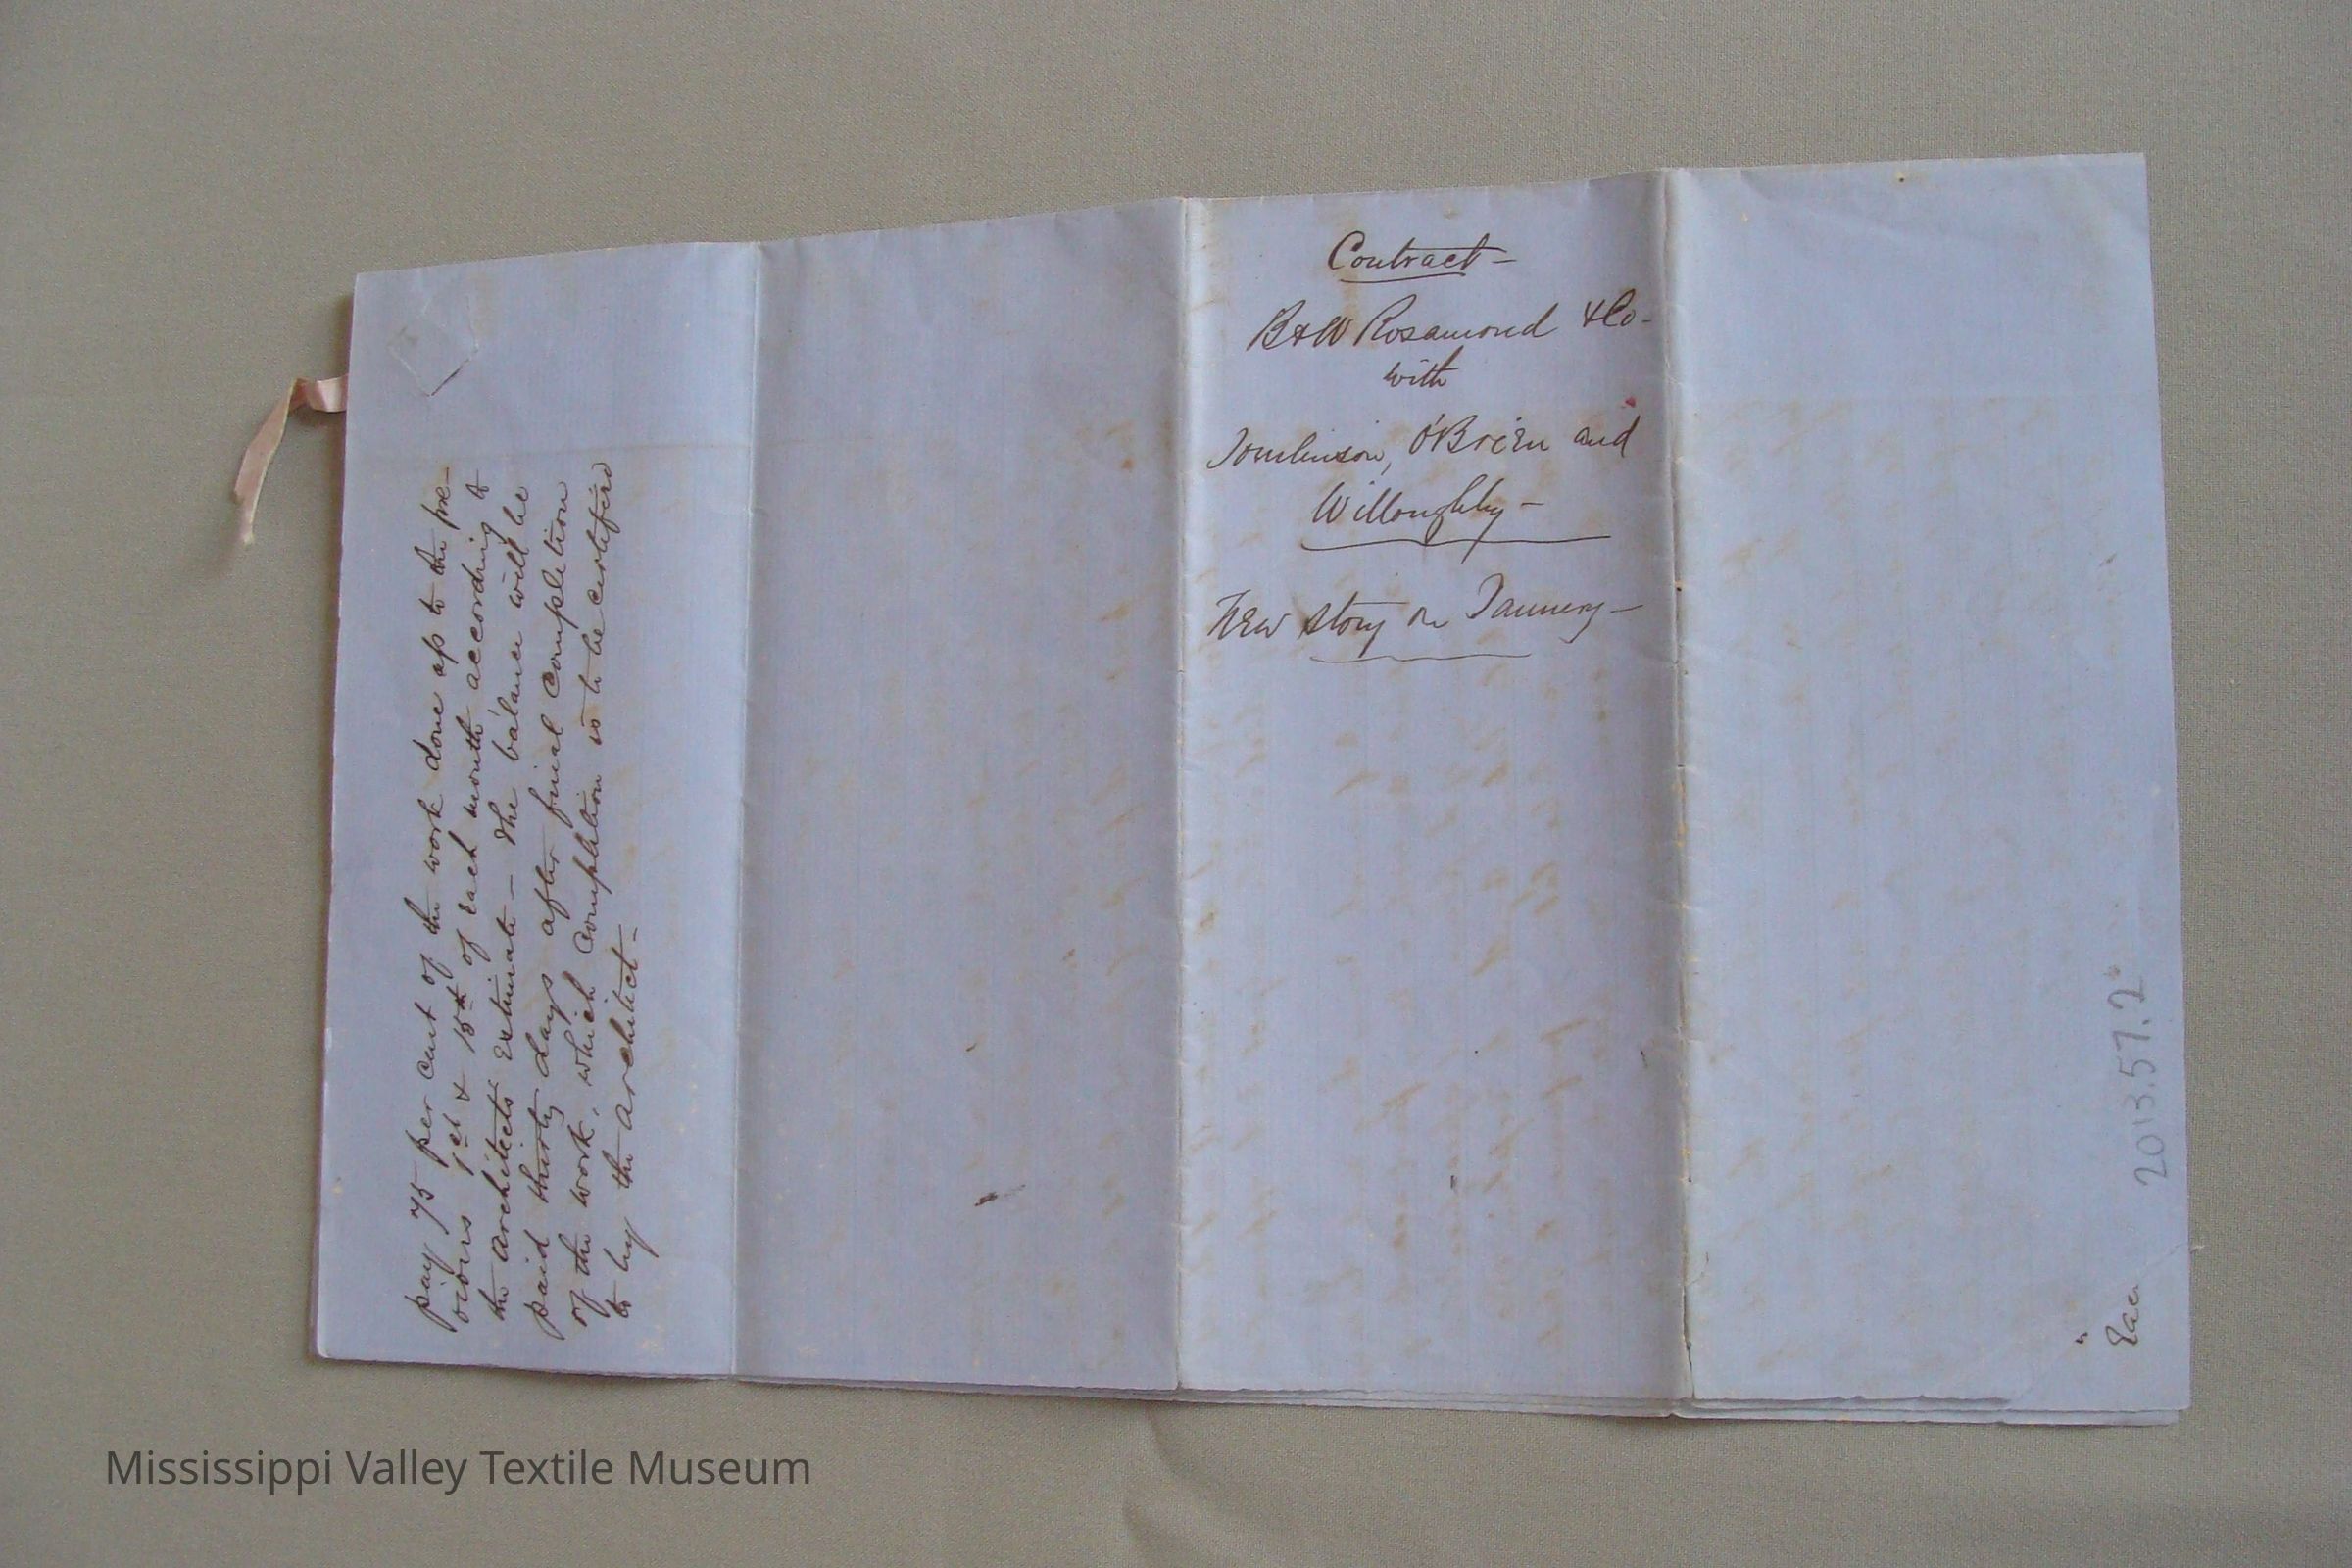 pay 75 per cent of the work done up to the pre-
vious 1st & 15th of each month according to
the architects estimate - The balance will be
paid thirty days after final completion
of the work, which completion is to be certified
to by the architect -
Contract -
B & W Rosamond & Co -
with
Tomlinson, O'Brien and
Willoughby -
New story on Tannery -
2013.57.2
Mississippi Valley Textile Museum